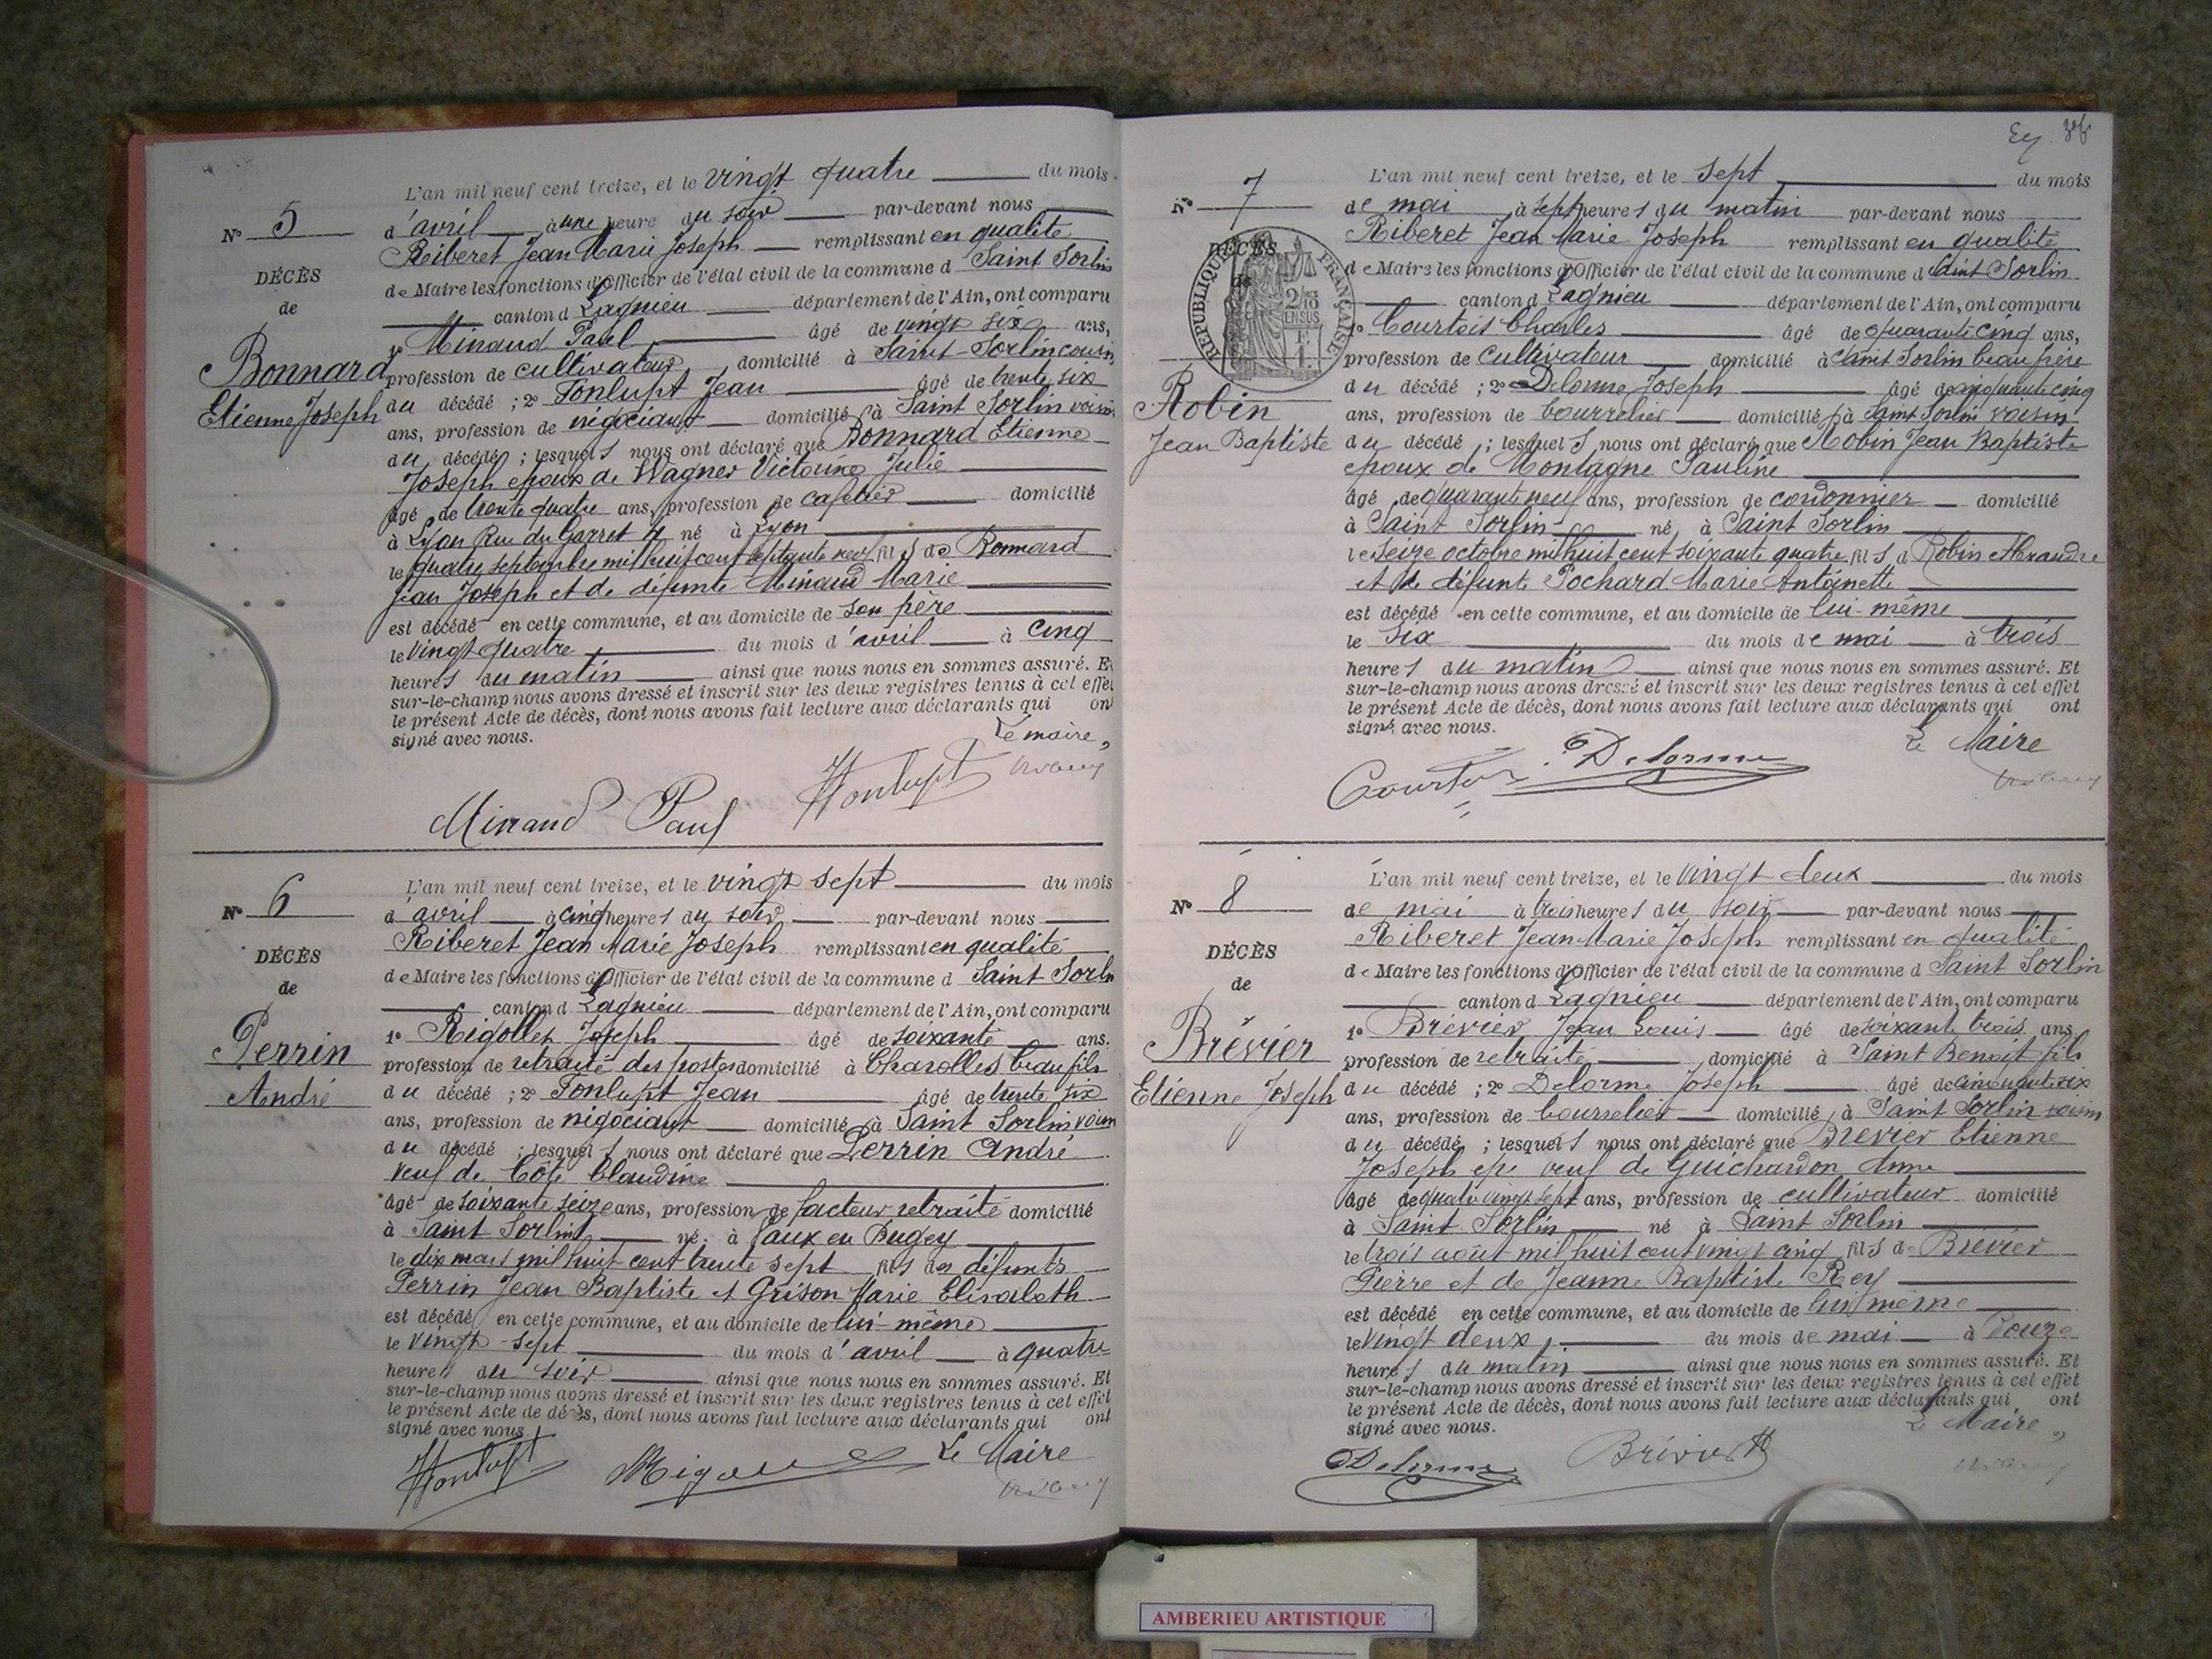 L'an mil neuf cent treize, et le vingt quatre du mois
Nº 5 d'avril à une heure du soir par-devant nous
Riberet Jean Marie Joseph remplissant en qualité
DÉCÈS de Maire les fonctions d'Officier de l'état civil de la commune d Saint Sorlin
de canton d Lagnieu département de l'Ain, ont comparu
1º Minaud Paul âgé de vingt six ans,
Bonnard profession de cultivateur, domicilié à Saint-Sorlin cousin
Etienne Joseph du décédé ; 2º Fonlupt Jean âgé de trente six
ans, profession de négociant domicilié à Saint Sorlin voisin
du décédé ; lesquels nous ont déclaré que Bonnard Etienne
Joseph époux de Wagner Victorine Julie
âgé de trente quatre ans, profession de cafetier domicilié
à Lyon Rue du Garret né à Lyon
le quatre septembre mil huit cent septante neuf fils de Bonnard
Jean Joseph et de défunte Minaud Marie
est décédé en cette commune, et au domicile de son père
le vingt quatre du mois d'avril à cinq
heures du matin ainsi que nous nous en sommes assuré. Et
sur-le-champ nous avons dressé et inscrit sur les deux registres tenus à cet effet
le présent Acte de décès, dont nous avons fait lecture aux déclarants qui ont
signé avec nous.
Le maire,
Minaud Paul Fonlupt
L'an mil neuf cent treize, et le vingt sept du mois
Nº 6 d'avril à cinq heures du soir par-devant nous
Riberet Jean Marie Joseph remplissant en qualité
DÉCÈS de Maire les fonctions d'Officier de l'état civil de la commune d Saint Sorlin
de canton d Lagnieu département de l'Ain, ont comparu
1º Rigollet Joseph âgé de soixante ans.
Perrin profession de retraité des postes domicilié à Charolles beau fils
André du décédé ; 2º Fonlupt Jean âgé de trente six
ans, profession de négociant domicilié à Saint Sorlin voisin
du décédé ; lesquels nous ont déclaré que Perrin André
veuf de Côte Claudine
âgé de soixante seize ans, profession de facteur retraité domicilié
à Saint Sorlin né à Vaux en Bugey
le dix mars mil huit cent trente sept fils des défunts
Perrin Jean Baptiste et Grison Marie Elisabeth
est décédé en cette commune, et au domicile de lui-même
le vingt-sept du mois d'avril à quatre
heures du soir ainsi que nous nous en sommes assuré. Et
sur-le-champ nous avons dressé et inscrit sur les deux registres tenus à cet effet
le présent Acte de décès, dont nous avons fait lecture aux déclarants qui ont
signé avec nous
Fonlupt Le Maire
L'an mil neuf cent treize, et le sept du mois
Nº 7 de mai à sept heures du matin par-devant nous
Riberet Jean Marie Joseph remplissant en qualité
DÉCÈS de Maire les fonctions d'Officier de l'état civil de la commune d Saint Sorlin
de canton d Lagnieu département de l'Ain, ont comparu
RÉPUBLIQUE FRANÇAISE
1º Courtois Charles âgé de quarante cinq ans,
profession de cultivateur domicilié à Saint Sorlin beau frère
du décédé ; 2º Delorme Joseph âgé de cinquante cinq
Robin ans, profession de bourrelier domicilié à Saint Sorlin voisin
Jean Baptiste du décédé ; lesquels nous ont déclaré que Robin Jean Baptiste
époux de Montagne Pauline
âgé de quarante neuf ans, profession de cordonnier domicilié
à Saint Sorlin né à Saint Sorlin
le seize octobre mil huit cent soixante quatre fils d Robin Alexandre
et de défunte Pochard Marie Antoinette
est décédé en cette commune, et au domicile de lui-même
le six du mois de mai à trois
heures du matin ainsi que nous nous en sommes assuré. Et
sur-le-champ nous avons dressé et inscrit sur les deux registres tenus à cet effet
le présent Acte de décès, dont nous avons fait lecture aux déclarants qui ont
signé avec nous.
Courtois Delorme Le Maire
L'an mil neuf cent treize, et le vingt deux du mois
Nº 8 de mai à trois heures du soir par-devant nous
Riberet Jean Marie Joseph remplissant en qualité
DÉCÈS de Maire les fonctions d'Officier de l'état civil de la commune d Saint Sorlin
de canton d Lagnieu département de l'Ain, ont comparu
1º Brévier Jean Louis âgé de soixante trois ans
Brévier profession de retraité domicilié à Saint Benoît fils
Etienne Joseph du décédé ; 2º Delorme Joseph âgé de cinquante six
ans, profession de bourrelier domicilié à Saint Sorlin voisin
du décédé ; lesquels nous ont déclaré que Brévier Etienne
Joseph veuf de Guichardon Anne
âgé de quatre vingt sept ans, profession de cultivateur domicilié
à Saint Sorlin né à Saint Sorlin
le trois août mil huit cent vingt cinq fils de Brévier
Pierre et de Jeanne Baptiste Rey
est décédé en cette commune, et au domicile de lui même
le vingt deux du mois de mai à Douze
heures du matin ainsi que nous nous en sommes assuré. Et
sur-le-champ nous avons dressé et inscrit sur les deux registres tenus à cet effet
le présent Acte de décès, dont nous avons fait lecture aux déclarants qui ont
signé avec nous.
Le Maire,
Delorme Brévier
AMBERIEU ARTISTIQUE